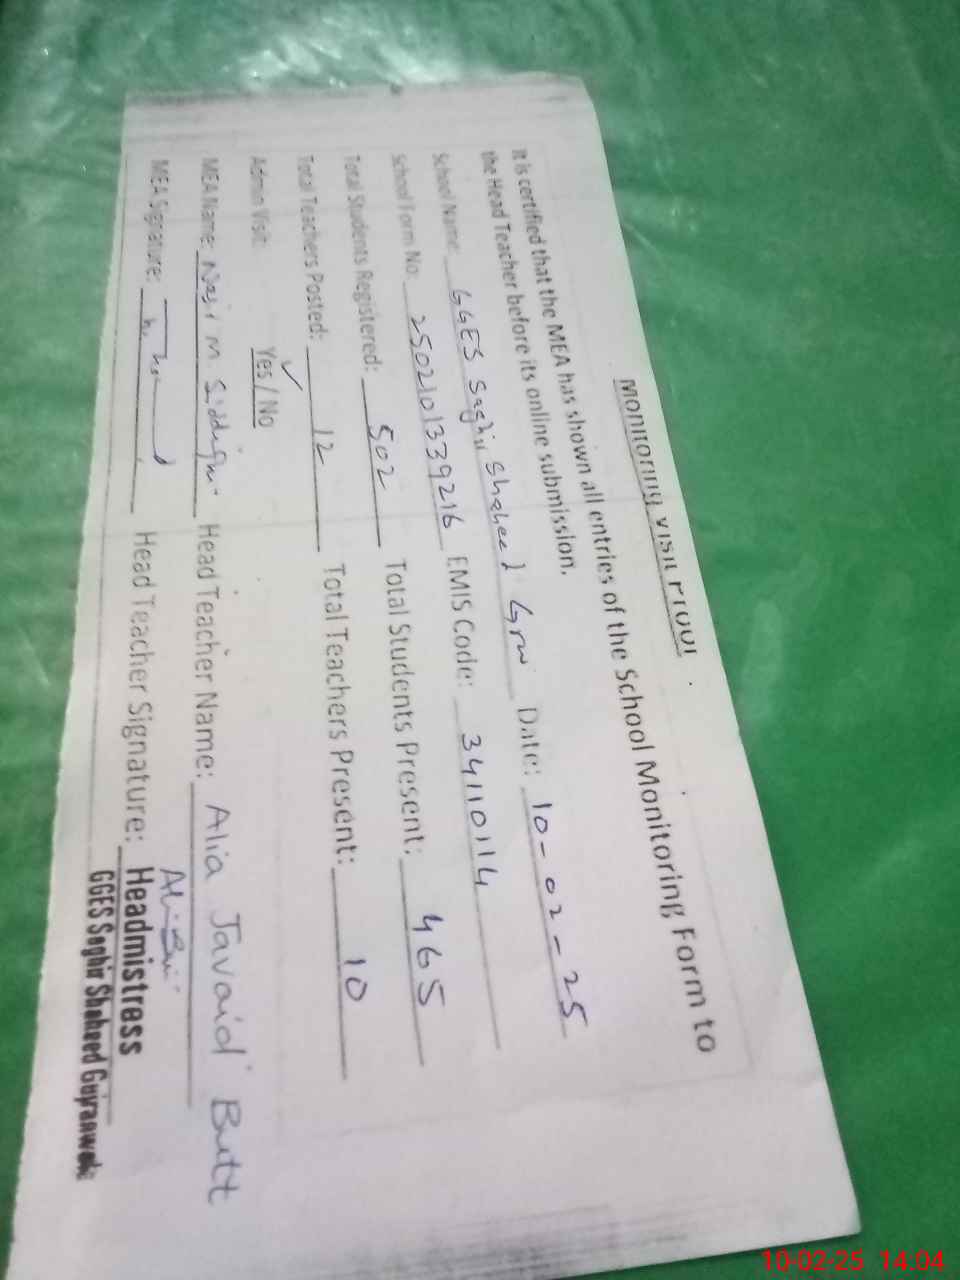 Monitoring Visit Proof
It is certified that the MEA has shown all entries of the School Monitoring Form to
the Head Teacher before its online submission.
School Name: GGES Saghir Shaheed Grw Date: 10-02-25
School Form No: 2502101339216 EMIS Code: 34110114
Total Students Registered: 502 Total Students Present: 465
Total Teachers Posted: 12 Total Teachers Present: 10
Admin Visit: Yes / No
MEA Name: M Siddiqui Head Teacher Name: Alia Javaid Butt
MEA Signature: Head Teacher Signature:
Headmistress
GGES Saghir Shaheed Gujranwala
10-02-25 14:04